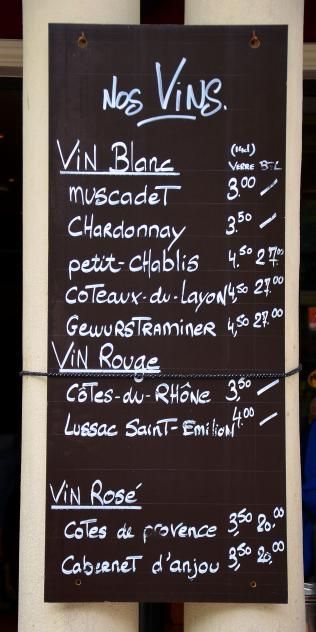 Nos Vins.
(14cl)
Vin Blanc Verre BTL
Muscadet 3.00 -
Chardonnay 3.50 -
petit-Chablis 4.50 27.00
Coteaux-du-Layon 4,50 27.00
Gewurstraminer 4,50 27.00
Vin Rouge
Côtes-du-Rhône 3,50 -
Lussac Saint-Emilion 4.00 -
Vin Rosé
Cotes de provence 3,50 20.00
Cabernet d'anjou 3,50 20.00